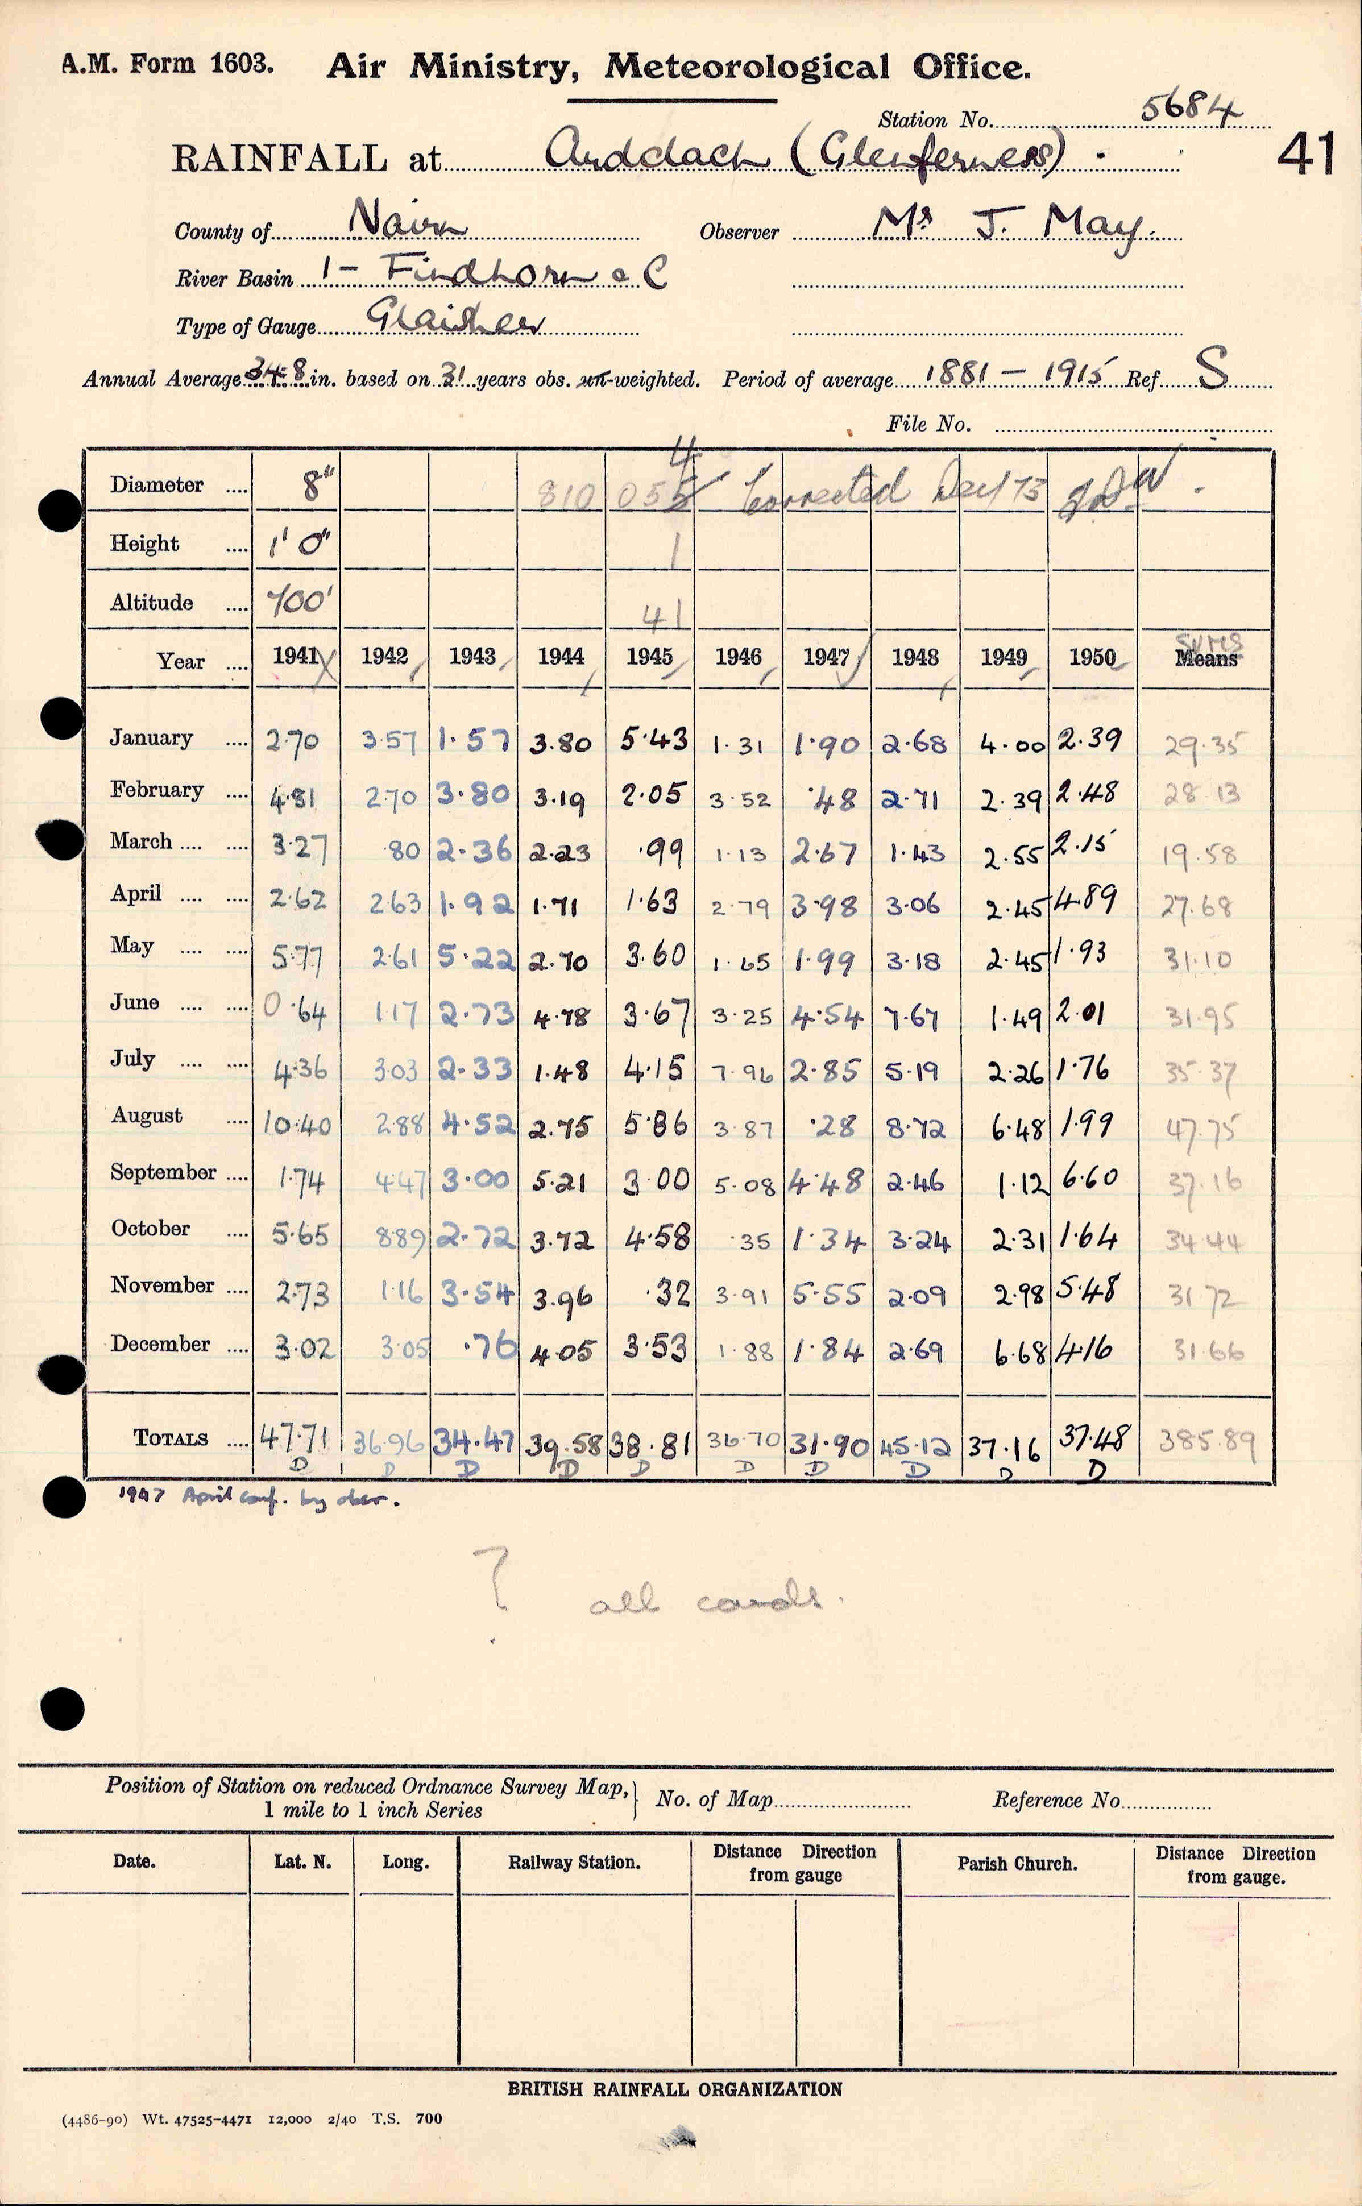 A.M. Form 1603. Air Ministry, Meteorological Office.
Station No. 5684
RAINFALL at Arddlach (Glenferness) . 41
County of Nairn Observer Mr J. May.
River Basin 1 – Findhorn &C
Type of Gauge Glaisher
Annual Average 34.8 in. based on 31 years obs. un-weighted. Period of average 1881 – 1915 Ref. S
File No.
Diameter .... 8" 810 055 4 Corrected Dec/73
Height .... 1' 0" 1
Altitude .... 700' 41
Year .... 1941 1942 1943 1944 1945 1946 1947 1948 1949 1950 Means SUMS
January .... 2.70 3.57 1.57 3.80 5.43 1.31 1.90 2.68 4.00 2.39 29.35
February .... 4.81 2.70 3.80 3.19 2.05 3.52 .48 2.71 2.39 2.48 28.13
March .... .... 3.27 .80 2.36 2.23 .99 1.13 2.67 1.43 2.55 2.15 19.58
April .... .... 2.62 2.63 1.92 1.71 1.63 2.79 3.98 3.06 2.45 4.89 27.68
May .... .... 5.77 2.61 5.22 2.70 3.60 1.65 1.99 3.18 2.45 1.93 31.10
June .... .... 0.64 1.17 2.73 4.78 3.67 3.25 4.54 7.67 1.49 2.01 31.95
July .... .... 4.36 3.03 2.33 1.48 4.15 7.96 2.85 5.19 2.26 1.76 35.37
August .... 10.40 2.88 4.52 2.75 5.86 3.87 .28 8.72 6.48 1.99 47.75
September .... 1.74 4.47 3.00 5.21 3.00 5.08 4.48 2.46 1.12 6.60 37.16
October .... 5.65 8.89 2.72 3.72 4.58 .35 1.34 3.24 2.31 1.64 34.44
November .... 2.73 1.16 3.54 3.96 .32 3.91 5.55 2.09 2.98 5.48 31.72
December .... 3.02 3.05 .76 4.05 3.53 1.88 1.84 2.69 6.68 4.16 31.66
TOTALS .... 47.71 36.96 34.47 39.58 38.81 36.70 31.90 45.12 37.16 37.48 385.89
D D D D D D D D D D
1947 April conf. by obsr.
? all cards.
Position of Station on reduced Ordnance Survey Map, } No. of Map Reference No.
1 mile to 1 inch Series
Date. Lat. N. Long. Railway Station. Distance Direction from gauge Parish Church. Distance Direction from gauge.
BRITISH RAINFALL ORGANIZATION
(4486-90) Wt. 47525-4471 12,000 2/40 T.S. 700